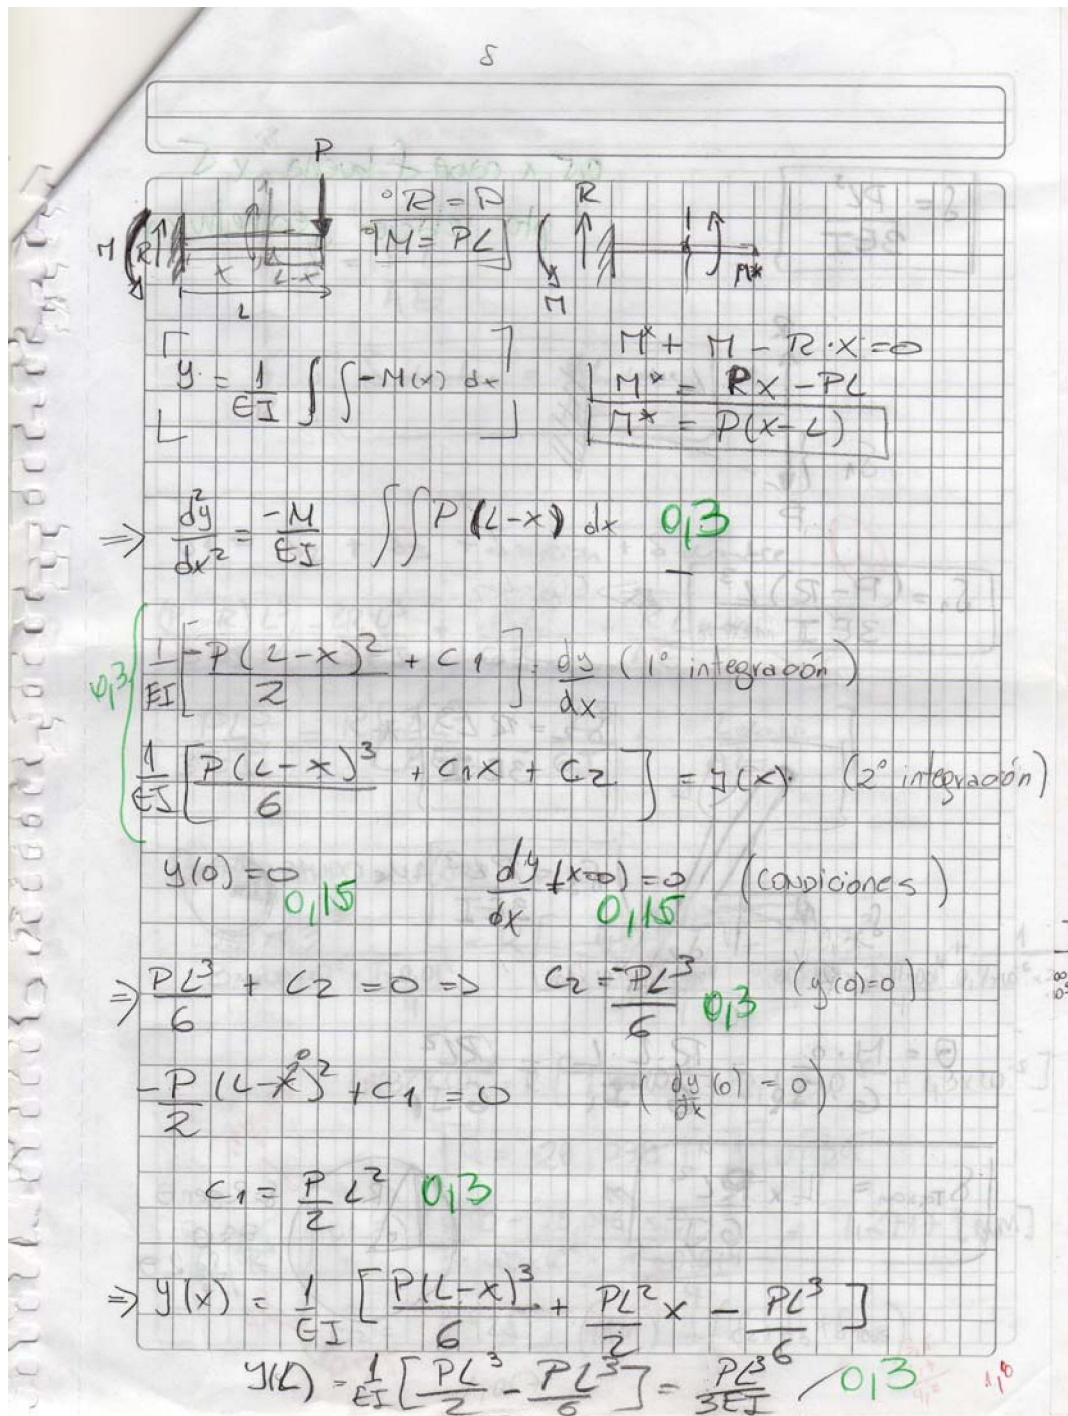 δ
P
R = P
M = PL
M R
x L-x
L
R
M
M*
M* + M - R·x = 0
y = 1/EI ∫∫ -M(x) dx
M* = Rx - PL
M* = P(x-L)
⇒ d²y/dx² = -M/EI ∫∫ P(L-x) dx 0,3
0,3
1/EI [-P(L-x)²/2 + C1] = dy/dx (1° integración)
1/EI [P(L-x)³/6 + C1x + C2] = y(x). (2° integración)
y(0) = 0 dy/dx (x=0) = 0 (condiciones)
0,15 0,15
⇒ PL³/6 + C2 = 0 ⇒ C2 = -PL³/6 0,3 (y(0)=0)
-P/2 (L-x⁰)² + C1 = 0 (dy/dx (0) = 0)
C1 = P/2 L² 0,3
⇒ y(x) = 1/EI [P(L-x)³/6 + PL²/2 x - PL³/6]
y(L) = 1/EI [PL³/2 - PL³/6] = PL³/3EI / 0,3 1,8